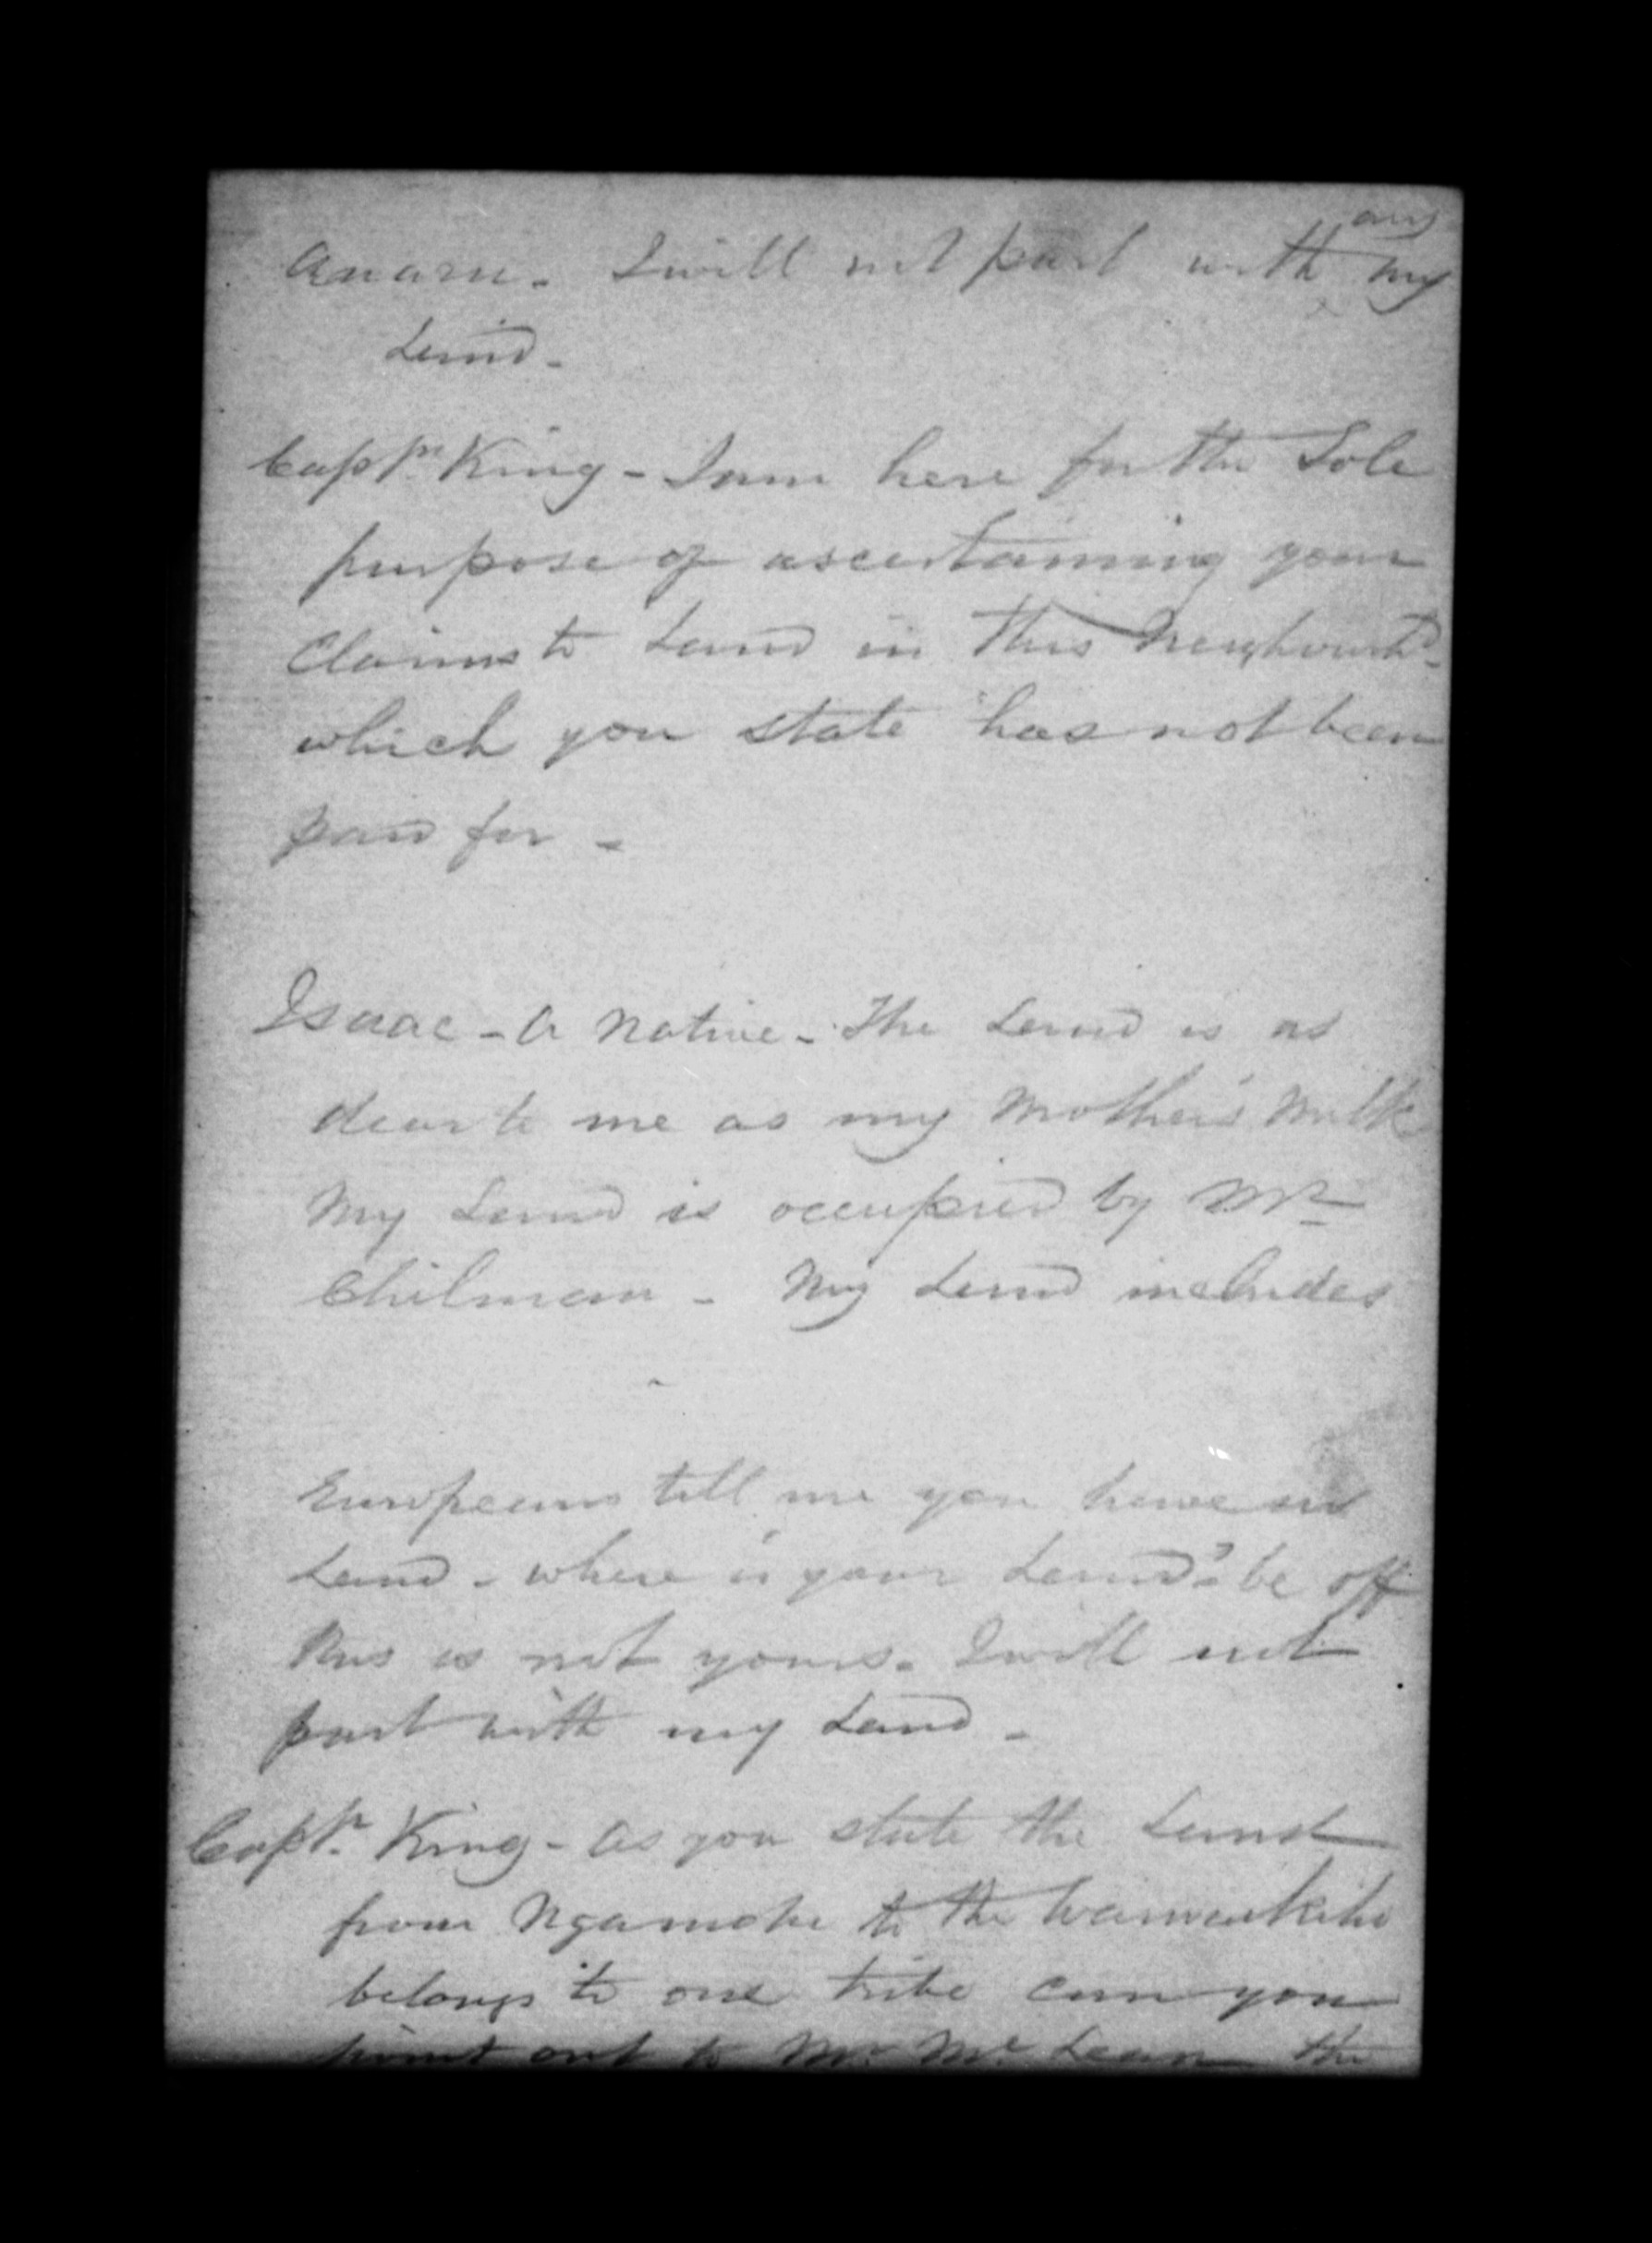 Anaru. I will not part with any my
Land -
Captn. King - I am here for the Sole
purpose of ascertaining your
Claims to Land in this Neighbourhd-
which you state has not been
paid for -
Isaac - A Native - The Land is as
dear to me as my Mother's Milk
My Land is occupied by Mr
Chilman - My Land includes
Europeans tell me you have no
Land - where is your Land? be off
this is not yours. I will not
part with my Land -
Captn. King - As you state the Land
from Ngamotu to the
belongs to one tribe can you
point out to Mr. Mc Lean the